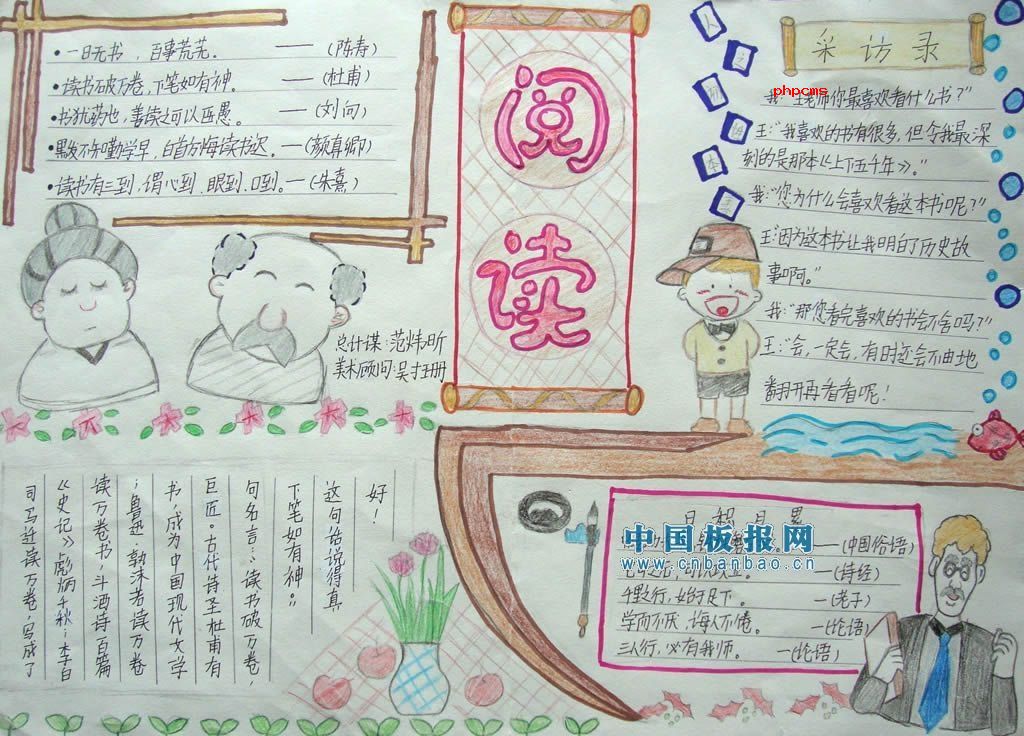 •一日无书，百事荒芜。 ——(陈寿)
•读书破万卷，下笔如有神。 ——(杜甫)
•书犹药也，善读之可以医愚。 ——(刘向)
•黑发不知勤学早，白首方悔读书迟。—(颜真卿)
•读书有三到，谓心到、眼到、口到。—(朱熹)
总计谋：范炜昕
美术顾问：吴才玥
阅
读
人
之
初
性
本
采访录
phpcms
我："王老师你最喜欢看什么书？"
王："我喜欢的书有很多，但令我最深
刻的是那本《上下五千年》。"
我："您为什么会喜欢看这本书呢？"
王："因为这本书让我明白了历史故
事啊。"
我："那您看完喜欢的书会不舍吗？"
王："会，一定会，有时还会不由地
翻开再看看呢！
好！
这句话说得真
下笔如有神。"
句名言："读书破万卷，
巨匠。古代诗圣杜甫有
书，成为中国现代文学
；鲁迅、郭沫若读万卷
读万卷书，斗酒诗百篇
《史记》彪炳千秋；李白
司马迁读万卷，写成了
日积月累
——(中国俗语)
—(诗经)
千里之行，始于足下。 —(老子)
学而不厌，诲人不倦。 —(论语)
三人行，必有我师。 —(论语)
中国板报网
www.cnbanbao.cn